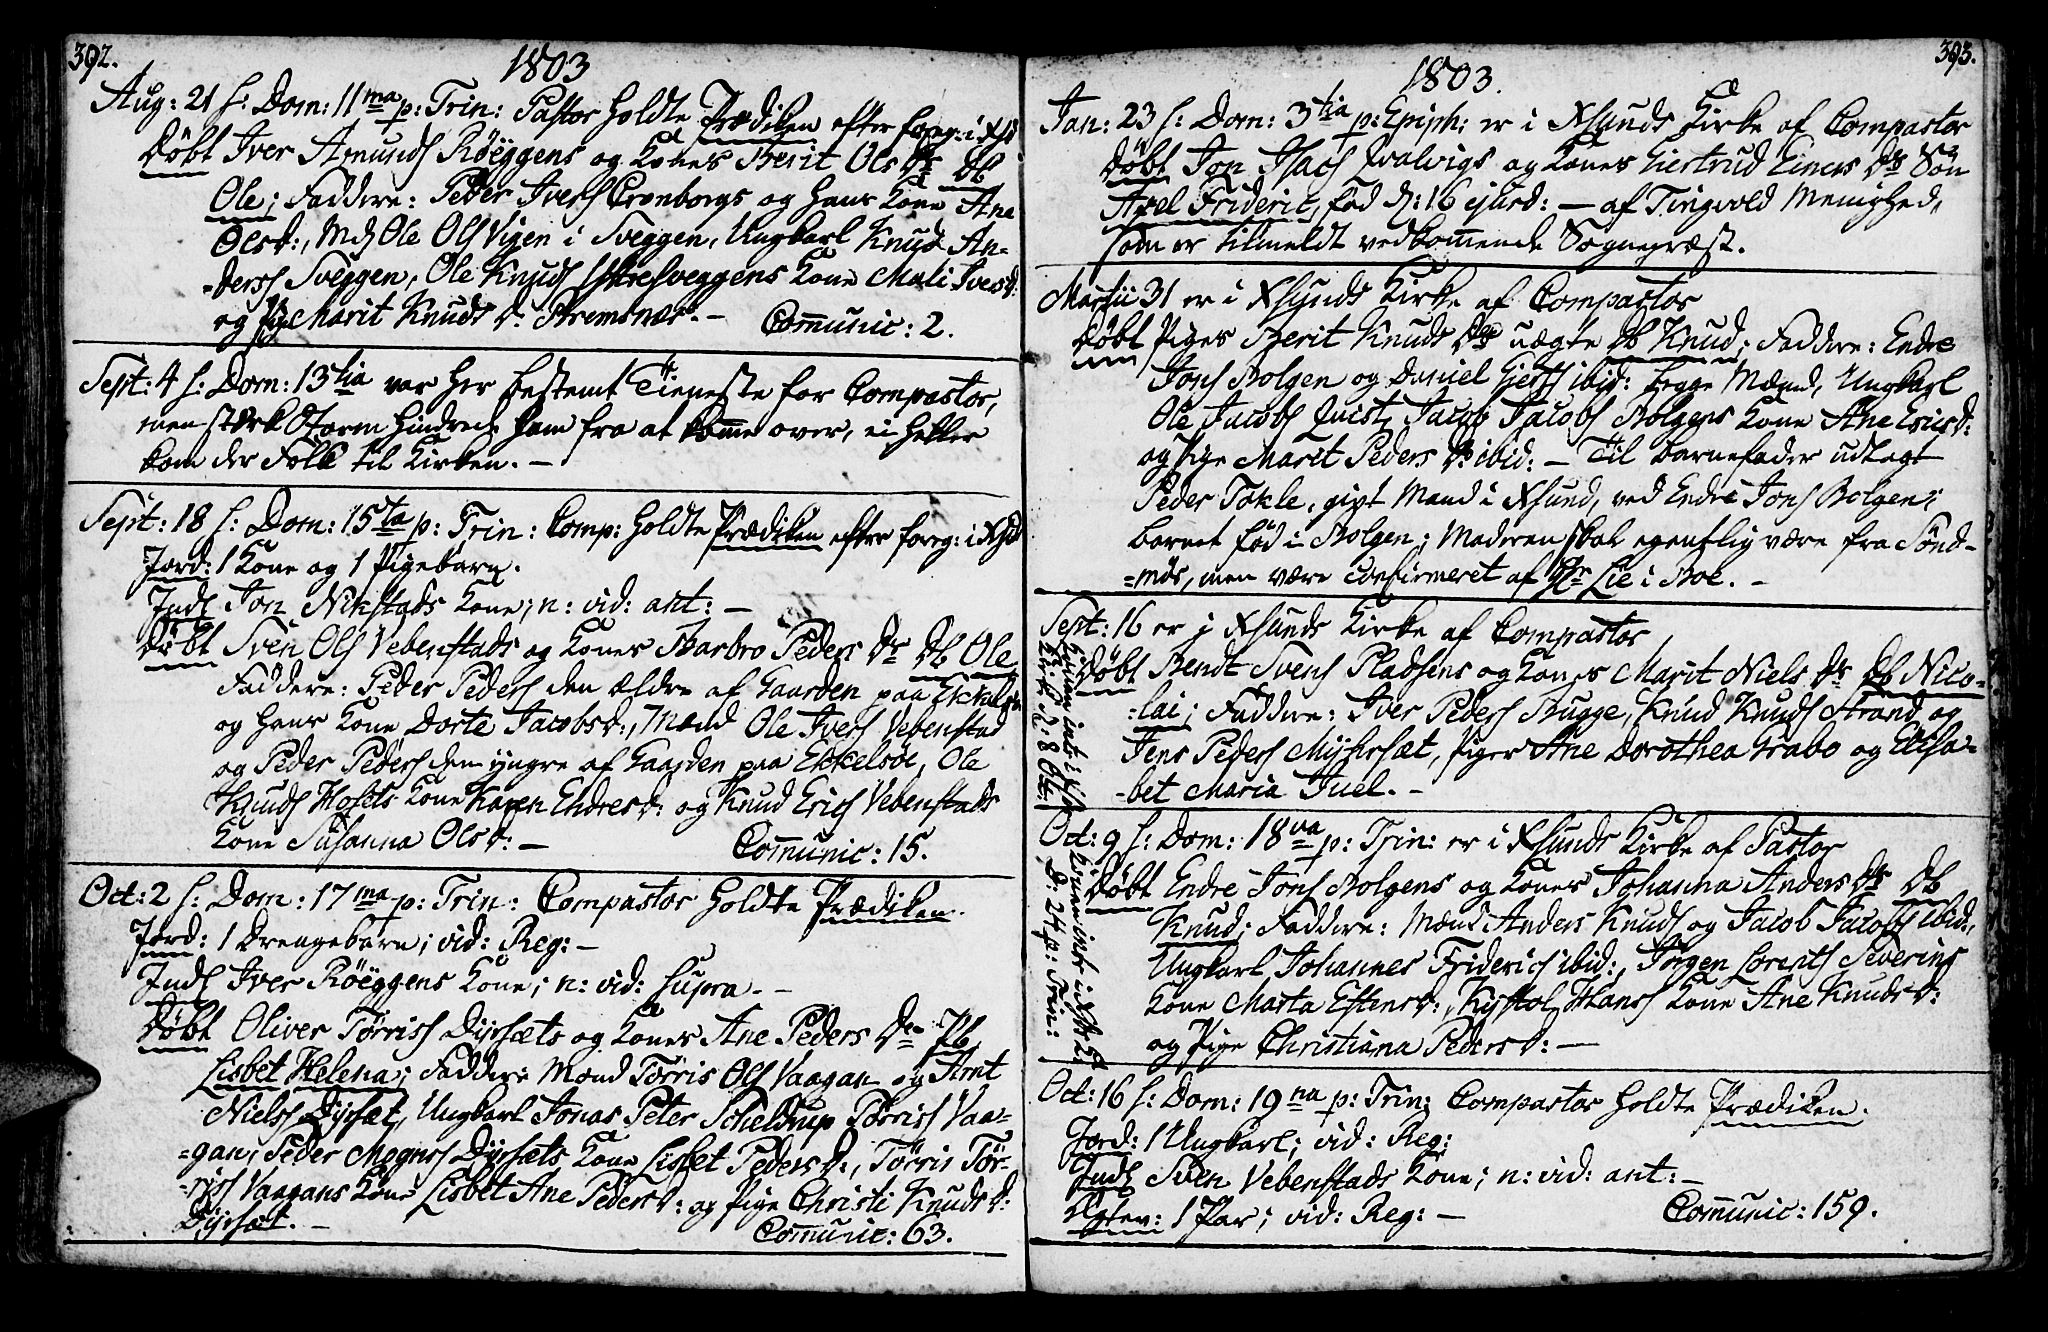 392.
1803
Aug: 21 f: Dom: 11ma p: Trin: Pastor holdte Prædiken efter foreg: i Xst
Døbt Iver Amunds Røeggens og Kones Berit Ols Dr Db
Ole; Faddere: Peder Ivers Cronborgs og hans Kone Ane
Olsd:, Md Ole Ols Vigen i Sveggen, Ungkarl Knud An-
-derss Sveggen, Ole Knuds Sveggens Kone Mali Ivesd:
og Pige Marit Knuds d: Bremsnæs. - Communic: 2.
Sept: 4 f: Dom: 13tia var her bestemt Tieneste for Compastor,
men stærk Storm hindrede ham fra at komme over, ei heller
kom der Folk til Kirken. -
Sept: 18 f: Dom: 15ta p: Trin: Comp: holdte Prædiken efter foreg: i Xst
Jord: 1 Kone og 1 Pigebarn.
Indl Jon Nikstads Kone; n: vid: ant: -
Døbt Sven Ols Vebenstads og Kones Barbro Peders Dr Db Ole
Faddere: Peder Peders den ældre af Gaarden paa Ekkelsøe
og hans Kone Dorte Jacobsd:, Mænd Ole Ivers Vebenstad
og Peder Peders den yngre af Gaarden paa Ekkelsøe, Ole
Knuds Hosets Kone Karen Endresd: og Knud Erics Vebenstads
Kone Susanna Olsd: - Communic: 15.
Oct: 2 f: Dom: 17ma p: Trin: Compastor holdte Prædiken.
Jord: 1 Drengebarn; vid: Reg: -
Indl Iver Røeggens Kone; n: vid: supra. -
Døbt Oliver Tørriss Dyrsæts og Kones Ane Peders Dr Pb
Lisbet Helena; Faddere Mænd Tørris Ols Vaagan og Amt
Nielss Dyrsæt, Ungkarl Jonas Peter Scheldrup Tørriss Vaa-
-gan, Peder Mogness Dyrsæts Kone Lisbet Pedersd:, Tørris Tør-
-riss Vaagans Kone Lisbet Ane Pedersd: og Pige Christi Knudsd:
Dyrsæt. - Communic: 63.
393.
1803.
Jan: 23 f: Dom: 3tia p: Epiph: er i Xsunds Kirke af Compastor
Døbt Jon Isacs Qvalvigs og Kones Giertrud Einers Dr Søn
Axel Frideric, fød d: 16 ejusd: - af Tingvold Menighed,
som er tilmeldt vedkommende Sognepræst.
Martii 31 er i Xsunds Kirke af Compastor
Døbt Piges Berit Knuds Drs uægte Db Knud; Faddere: Endre
Jons Bolgen og Daniel Gierts ibid: begge Mænd, Ungkarl
Ole Jacobs Quist, Jacob Jacobs Bolgens Kone Ane Ericsd:
og Pige Marit Peders d: ibid: - Til Barnefader udlagt
Peder Tokle, gift Mand i Xsund, ved Endre Jons Bolgen;
Barnet fød i Bolgen; Moderen skal egentlig være fra Sønd-
-mør, men være confirmeret af Hr Lie i Boe. -
Sept: 16 er i Xsunds Kirke af Compastor
Døbt Bendt Svens Pladsens og Kones Marit Niels Dr Db Nico-
-lai; Faddere: Iver Peders Bugge, Knud Knuds Strand og
Jens Peders Myhrsæt, Piger Ane Dorothea Grabo og Elisa-
-bet Maria Juel. -
Konen intr: i Xst
Kirke d: 8 Oct:
Oct: 9 f: Dom: 18va p: Trin: er i Xsunds Kirke af Pastor
Døbt Endre Jons Bolgens og Kones Johanna Anders Dr Db
Knud; Faddere: Mænd Anders Knuds og Jacob Jacobs ibid:,
Ungkarl Johannes Friderics ibid:, Jørgen Lorents Severins
Kone Marta Estensd:, Kystol Hans Kone Ane Knudsd:
og Pige Christiana Pedersd: -
Konen intr: i Xst K:
D: 24 p: Trin:
Oct: 16 f: Dom: 19na p: Trin: Compastor holdte Prædiken.
Jord: 1 Ungkarl; vid: Reg:
Indl Sven Vebenstads Kone; n: vid: ant: -
Ægtev: 1 Par; vid: Reg: - Communic: 159.